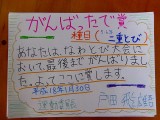 がんばったで賞
種目（二重とび）
あなたは、なわとび大会に
おいて最後までがんばりまし
た。よってここに賞します。
平成18年1月30日
運動委員会
戸田